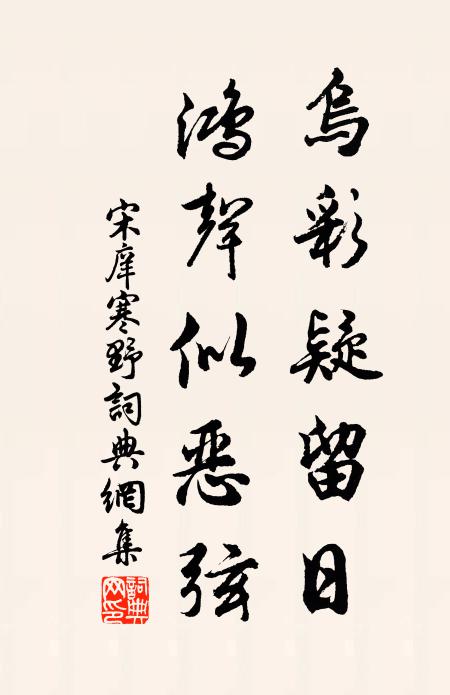 烏彩疑留日
鴻聲似惡弦
宋庠寒野詞典網集
詞典